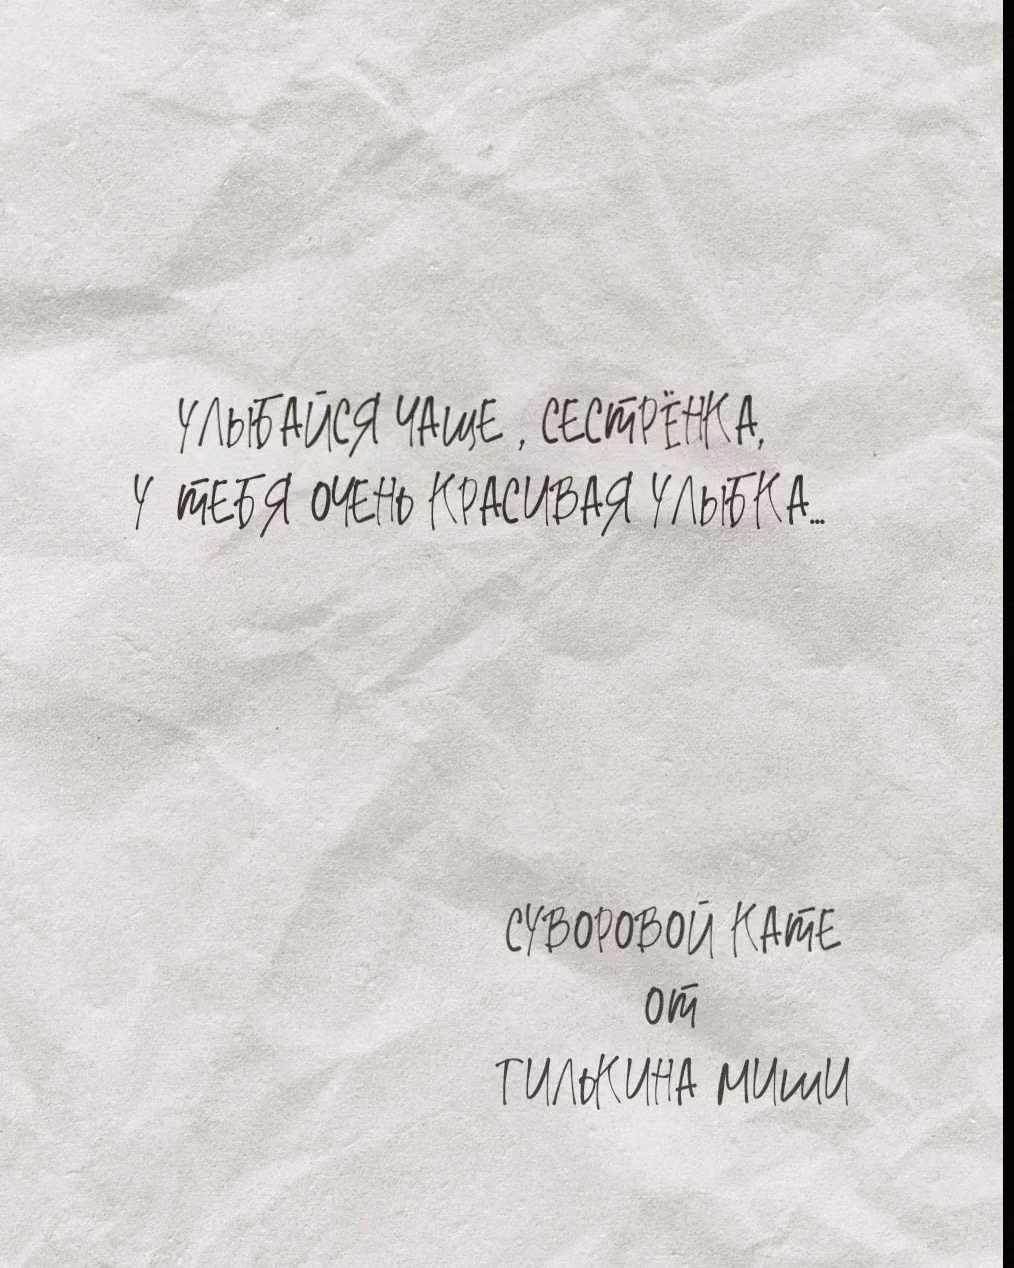 УЛЫБАЙСЯ ЧАЩЕ , СЕСТРЁНКА,
У ТЕБЯ ОЧЕНЬ КРАСИВАЯ УЛЫБКА...
СУВОРОВОЙ КАТЕ
ОТ
ТИЛЬКИНА МИШИ